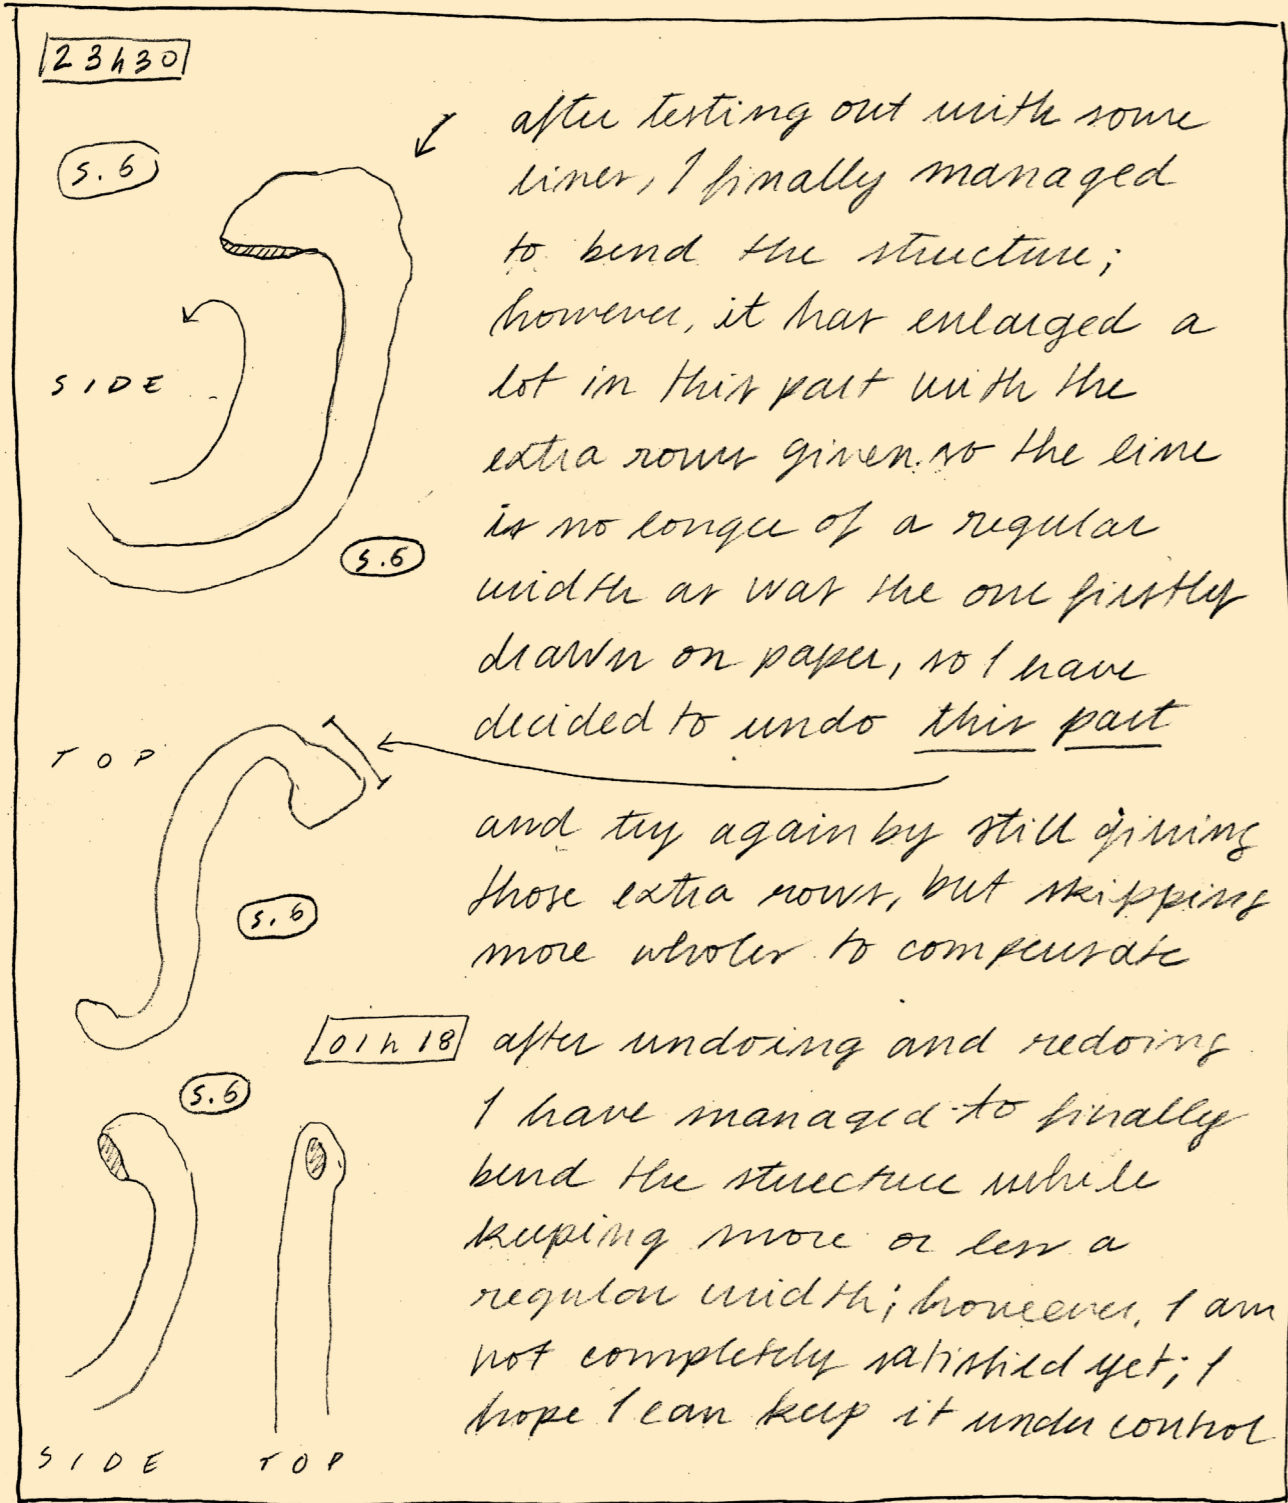 23h30
s.6
after testing out with some
lines, I finally managed
to bend the structure;
however, it has enlarged a
SIDE
lot in this part with the
extra rows given. so the line
is no longer of a regular
s.6
width as was the one firstly
drawn on paper, so I have
decided to undo this part
TOP
and try again by still giving
those extra rows, but skipping
s.6
more wholes to compensate
01h18
after undoing and redoing
s.6
I have managed to finally
bend the structure while
keeping more or less a
regular width; however, I am
not completely satisfied yet; I
hope I can keep it under control
SIDE
TOP